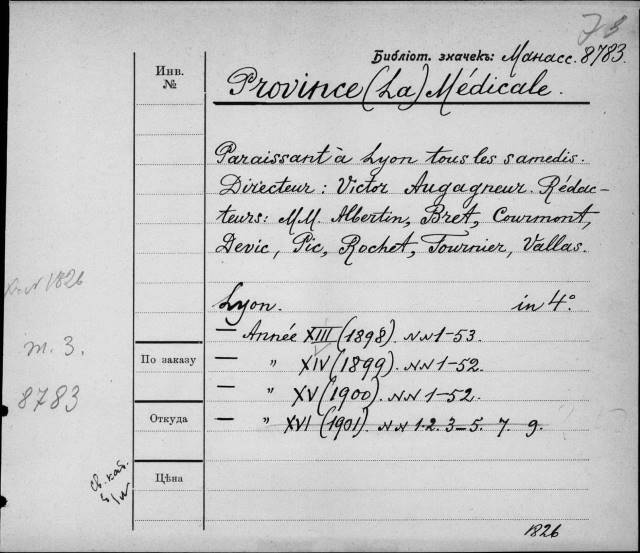 Библіот. значекъ: Манасс. 8783.
Инв.
№
Province (La) Médicale.
Paraissant à Lyon tous les samedis.
Directeur: Victor Augagneur. Rédac-
teurs: MM. Albertin, Bret, Courmont,
Devic, Pic, Rochet, Tournier, Vallas.
Lyon. in 4°.
— Année XIII (1898). NN 1-53.
— „ XIV (1899). NN 1-52.
— „ XV (1900). NN 1-52.
— „ XVI (1901). NN 1. 2. 3-5. 7. 9.
По заказу
Откуда
Цѣна
N 1826
т. 3.
8783
1826